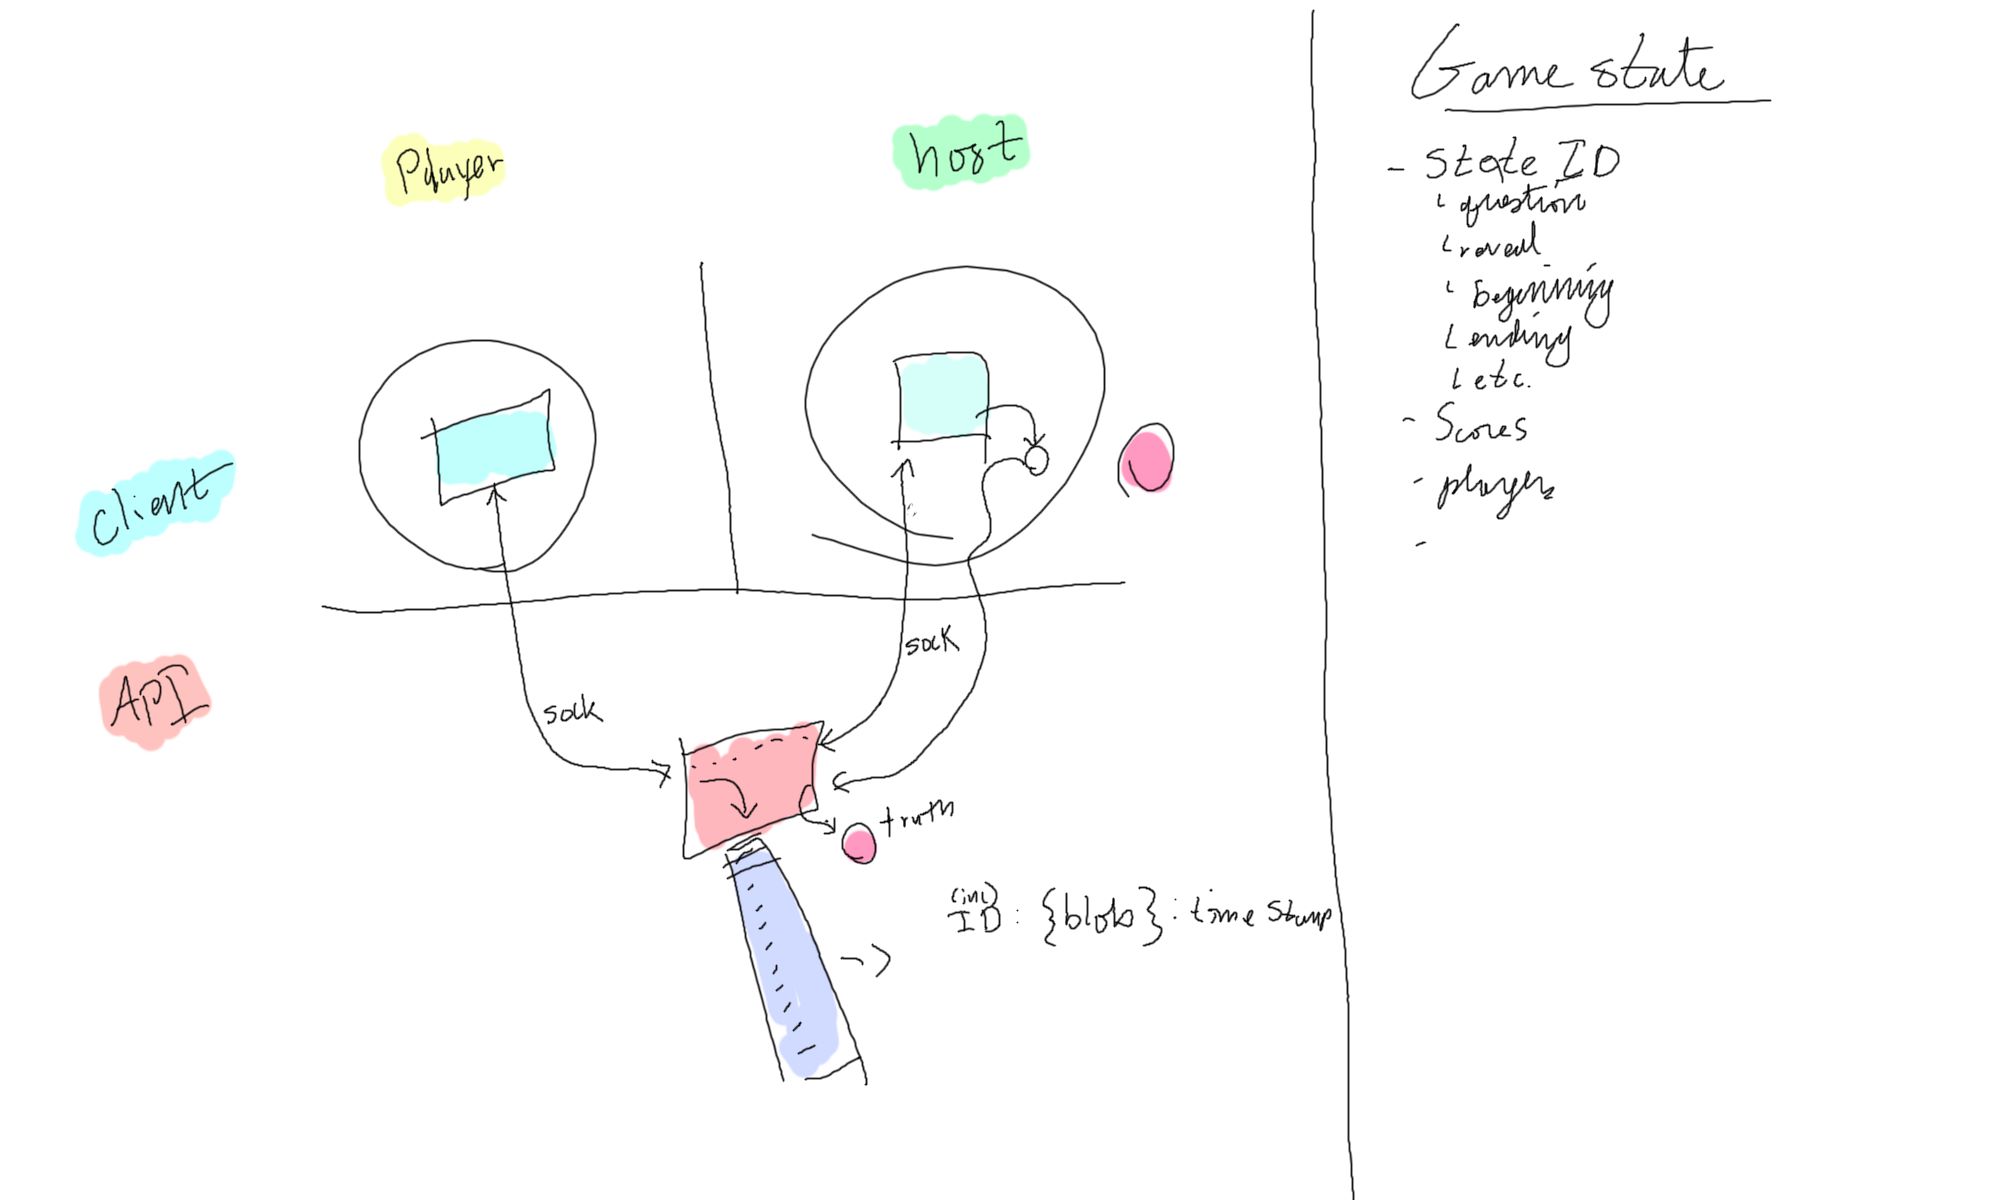 Player
host
client
API
sock
sock
truth
(inc)
ID : {blob} : time stamp
Game state
- State ID
question
reveal
beginning
ending
etc.
- Scores
- players
-